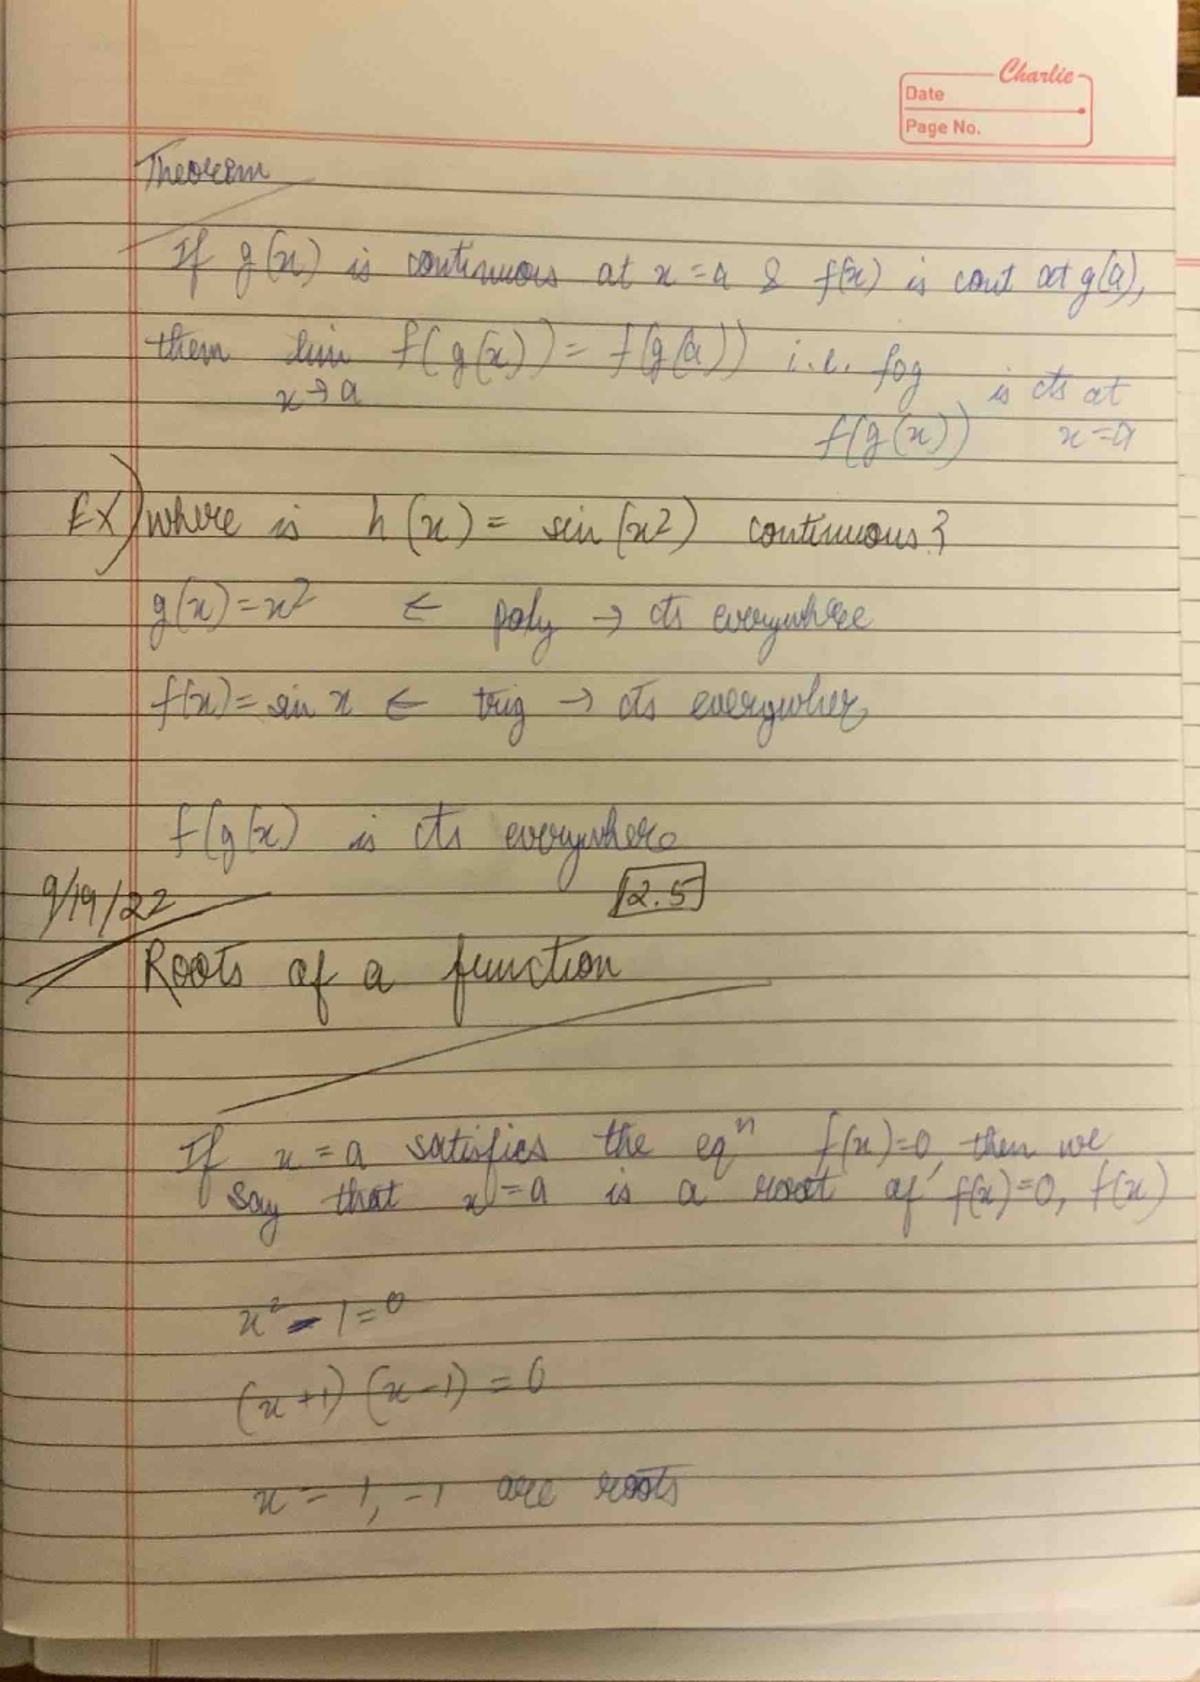 Charlie
Date
Page No.
Theorem
If g(x) is continuous at x = a & f(x) is cont at g(a),
then lim f(g(x)) = f(g(a)) i.e. fog is cts at
x→a f(g(x)) x=a
EX) where is h(x) = sin(x²) continuous?
g(x)=x² ← poly → cts everywhere
f(x)= sin x ← trig → cts everywher
f(g(x) is cts everywhere
9/19/22 2.5
Roots of a function
If x = a satisfies the eqⁿ f(x)=0, then we
say that x = a is a root of f(x)=0, f(x)
x² - 1 = 0
(x+1) (x-1) = 0
x = 1, -1 are roots